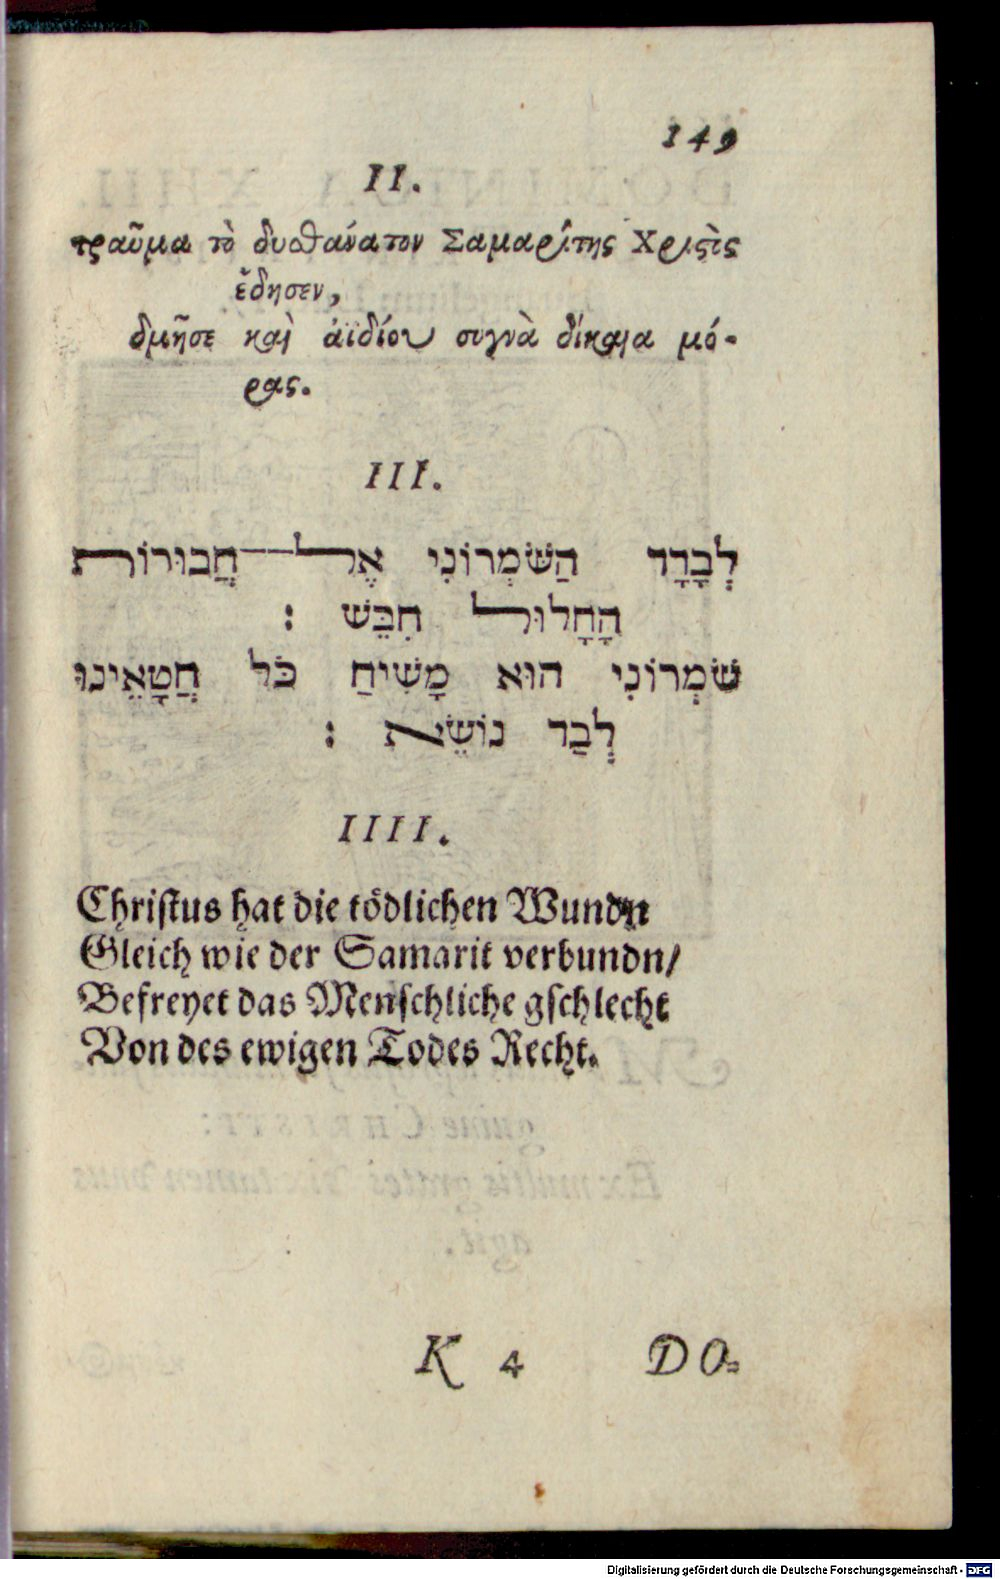 149
II.
τραῦμα τὸ δυσθάνατον Σαμαρίτης Χριστὸς
ἔδησεν,
δμῆσε καὶ ἀϊδίου συγνὰ δίκαια μό-
ρας.
III.
לְבָדָד הַשֹּׁמְרוֹנִי אֶל חֲבוּרוֹת
הָחָלוּל חִבֵּשׁ :
שֹׁמְרוֹנִי הוּא מָשִׁיחַ כֹּל חֲטָאֵינוּ
לְבַד נוֹשֵׂא :
IIII.
Chriſtus hat die tödlichen Wundn
Gleich wie der Samarit verbundn/
Befreyet das Menſchliche gſchlecht
Von des ewigen Todes Recht.
K 4 DO=
Digitalisierung gefördert durch die Deutsche Forschungsgemeinschaft - DFG